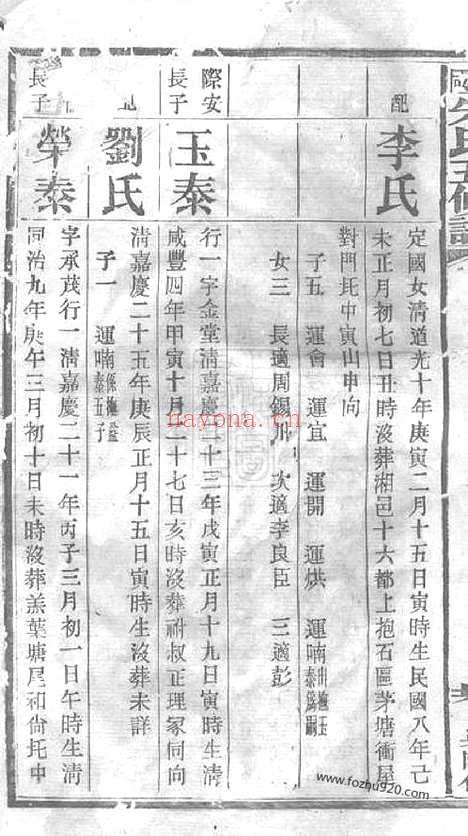 配
李氏
定國女清道光十年庚寅二月十五日寅時生民國八年己
未正月初七日丑時沒葬湘邑十六都上抱石區茅塘衝屋
對門圫中寅山申向
子五 運會 運宜 運開 運烘 運喃出撫玉泰為嗣
女三 長適周錫 次適李良臣 三適彭
際安長子
玉泰
行一字金堂清嘉慶二十三年戊寅正月十九日寅時生清
咸豐四年甲寅十月二十七日亥時沒葬祔叔正理冢同向
配
劉氏
清嘉慶二十五年庚辰正月十五日寅時生沒葬未詳
子一 運喃係撫益泰五子
長子
榮泰
字承茂行一清嘉慶二十一年丙子三月初一日午時生清
同治九年庚午三月初十日未時沒葬羔葉塘尾和尚圫中
nayona.cn
www.fozhu920.com